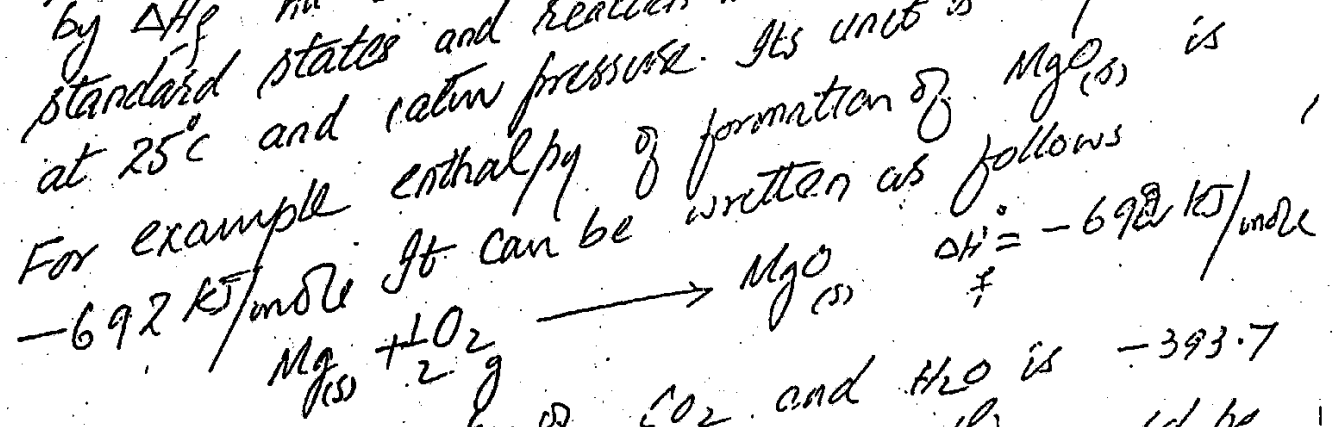 by ΔHf
standard states and
at 25°C and 1atm pressure. Its unit is
For example enthalpy of formation of MgO(s) is
-692 kJ/mole It can be written as follows
Mg(s) + 1/2 O2 g ⟶ MgO(s) ΔH°f = -692 kJ/mole
CO2 and H2O is -393.7
be